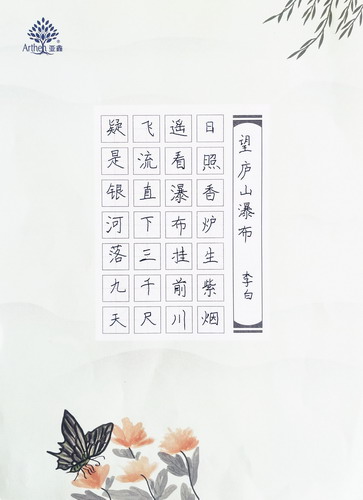 Arthen 亚鑫
望庐山瀑布 李白
日照香炉生紫烟
遥看瀑布挂前川
飞流直下三千尺
疑是银河落九天